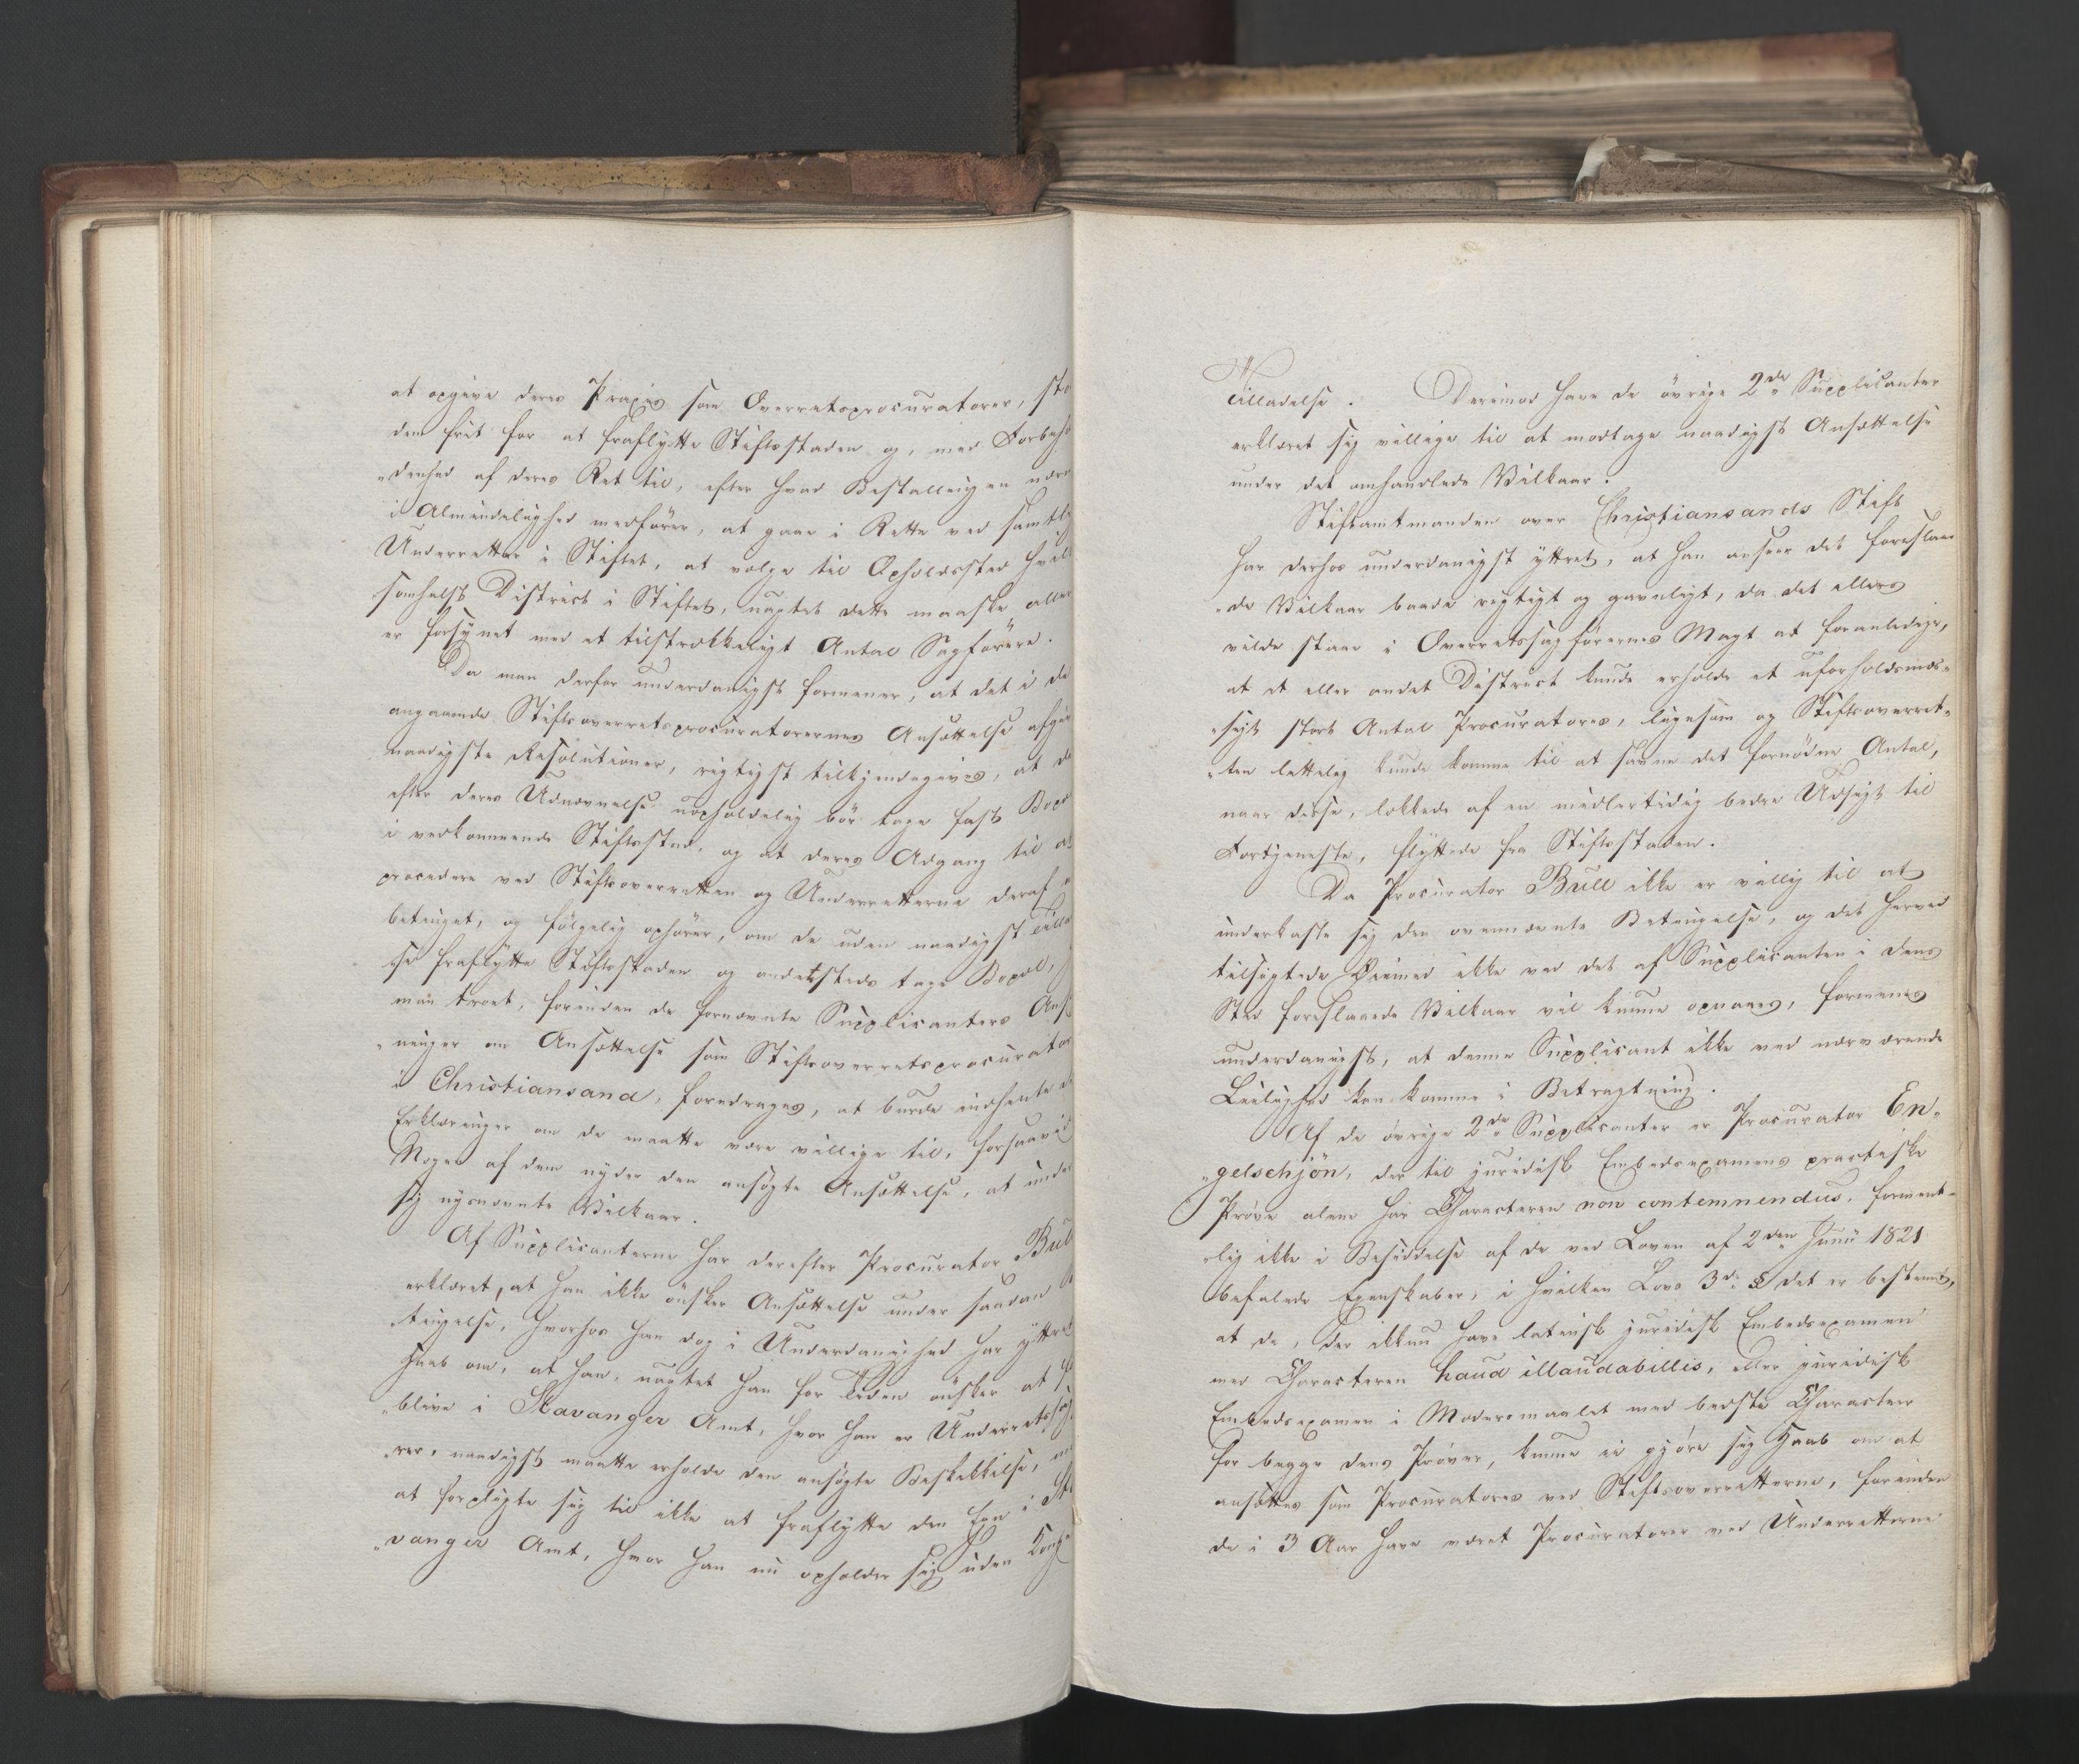 at opgive deres Praxis som Overretsprocuratorer, sto
den frit for at fraflytte Stiftsstaden og, med Forbeho
„denhed af deres Ret til, efter hvad Bestallingen
i Almindelighed medfører, at gaae i Rette ved samtl
Underretter i Stiftet, at vælge til Opholdssted hvil
somhelst District i Stiftet, uagtet dette maaske aller
er forsynet med et tilstrækkeligt Antal Sagførere.
Da man derfor underdanigst formener, at det i de
angaaende Stiftsoverretsprocuratorernes Ansættelse afgi
naadigste Resolutioner, rigtigst tilkjendegives, at de
efter deres Udnævnelse uopholdelig bør tage fast Bop
i vedkommende Stiftsstad, og at deres Adgang til at
procedere ved Stiftsoverretten og Underretterne deraf
betinget, og følgelig ophører, om de uden naadigst Tilla
se fraflytte Stiftsstaden og andetsteds tage Bopæl,
man troet, forinden de fornævnte Supplicanters Ans
„ninger om Ansættelse som Stiftsoverretsprocurator
i Christiansand, foredrages, at burde indhente
Erklæringer om de maatte være villige til, forsaavid
Nogen af dem nyder den ansøgte Ansættelse, at unde
sig nysnævnte Vilkaar.
Af Supplicanterne har derefter Procurator Bul
erklæret, at han ikke ønsker Ansættelse under saadan
tingelse, hvorhos han dog i Underdanighed har yttret
Haab om, at han, uagtet han for Tiden ønsker at
„blive i Stavanger Amt, hvor han er Underretssag
„rer, naadigst maatte erholde den ansøgte Beskikkelse,
at forpligte sig til ikke at fraflytte den i Sta
„vanger Amt, hvor han nu opholder sig uden Konge
Tilladelse. Derimod have de øvrige 2de Supplicanter
erklæret sig villige til at modtage naadigst Ansættelse
under det omhandlede Vilkaar.
Stiftamtmanden over Christiansands Stift
har derhos underdanigst yttret, at han anseer det foreslaae
„de Vilkaar baade rigtigt og gavnligt, da det ellers
vilde staae i Overretssagførernes Magt at foranledige,
at et eller andet District kunde erholde et uforholdsmæs„
„sigt stort Antal Procuratores, ligesom og Stiftsoverret„
„ten lettelig kunde komme til at savne det fornødne Antal,
naar disse, lokkede af en midlertidig bedre Udsigt til
Fortjeneste, flyttede fra Stiftsstaden.
Da Procurator Bull ikke er villig til at
underkaste sig den ovennævnte Betingelse, og det herved
tilsigtede Øiemed ikke ved det af Supplicanten i dens
Sted foreslaaede Vilkaar vil kunne opnaaes, formenes
underdanigst, at denne Supplicant ikke ved nærværende
Leilighed kan komme i Betragtning.
Af de øvrige 2de Supplicanter er Procurator En„
„gelschjøn, der til juridisk Embedsexamens practiske
Prøve alene har Characteren non contemnendus, forment„
„lig ikke i Besiddelse af de ved Loven af 2den Junii 1821
befalede Egenskaber, i hvilken Lovs 3de § det er bestemt,
at de, der ikkun have latinsk juridisk Embedsexamen
med Characteren haud illaudabillis, eller juridisk
Embedsexamen i Modersmaalet med bedste Characteer
for begge dens Prøver, kunne ei gjøre sig Haab om at
ansættes som Procuratores ved Stiftsoverretterne, forinden
de i 3 Aar have været Procuratorer ved Underretterne